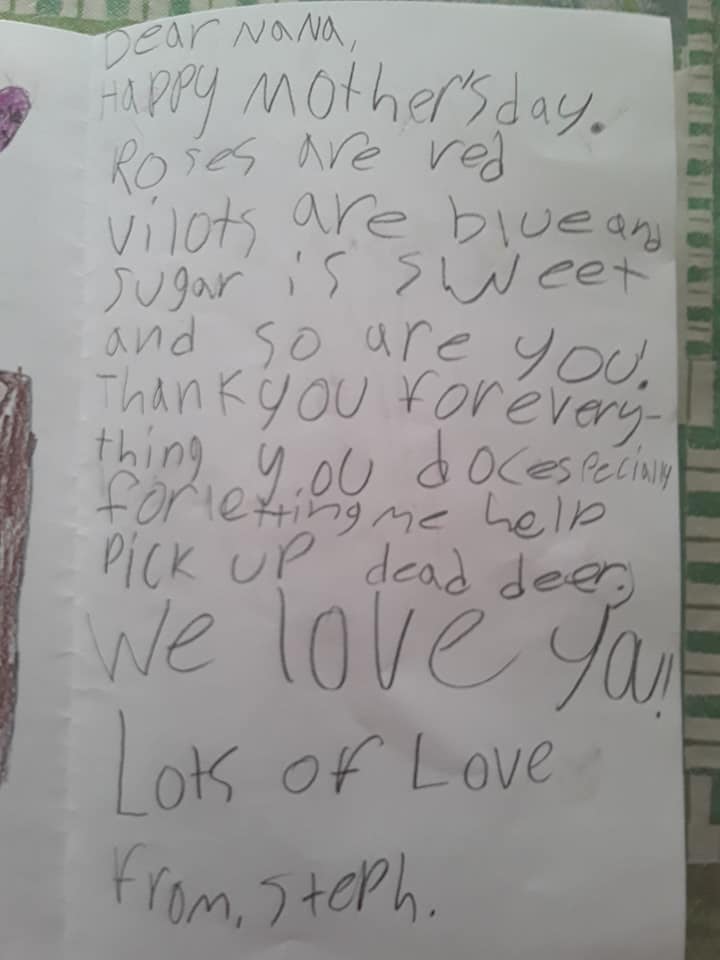 Dear NaNa,
Happy Mother's day.
Roses are red
vilots are blue and
sugar is sweet
and so are you.
Thank you for every-
thing you do (especially
for letting me help
pick up dead deer.)
We love ya!!
Lots of Love
from, Steph.